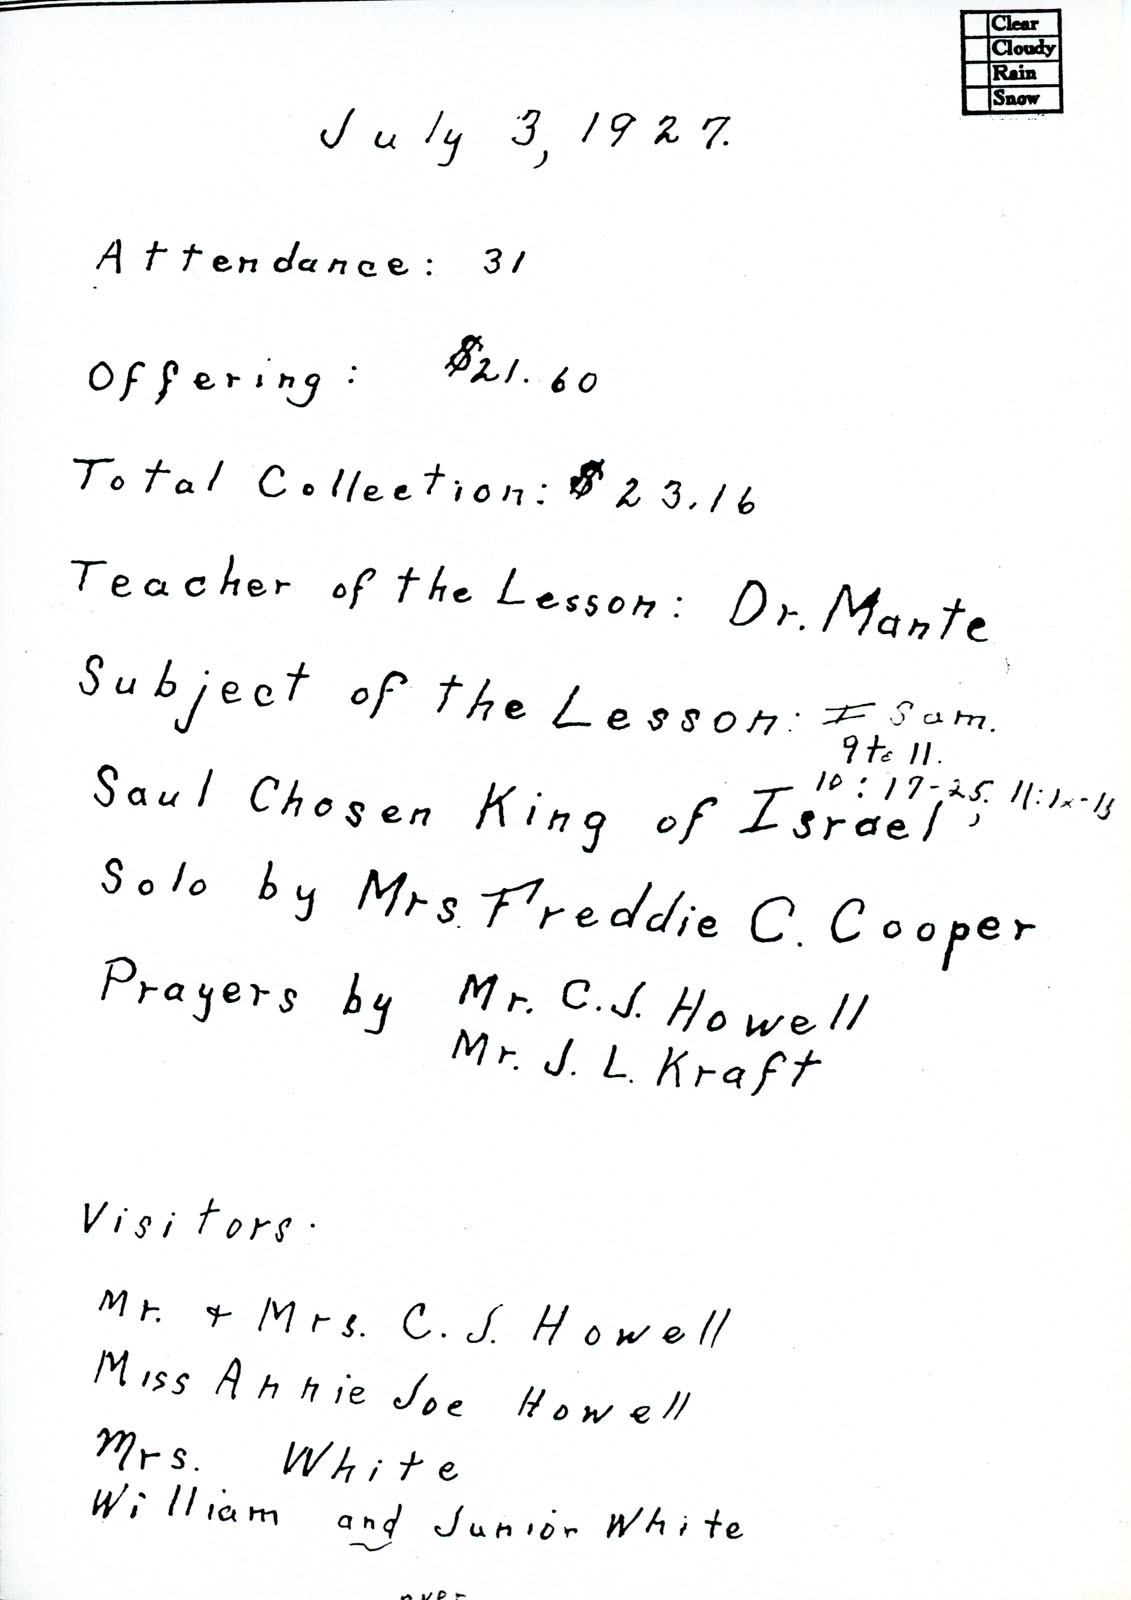 Clear
Cloudy
Rain
Snow
July 3, 1927.
Attendance: 31
Offering: $21.60
Total Collection: $23.16
Teacher of the Lesson: Dr. Mante
Subject of the Lesson: I Sam.
9 to 11.
10:17-25. 11:12-15
Saul Chosen King of Israel,
Solo by Mrs. Freddie C. Cooper
Prayers by Mr. C.J. Howell
Mr. J. L. Kraft
Visitors.
Mr. + Mrs. C. J. Howell
Miss Annie Joe Howell
Mrs. White
William and Junior White
over